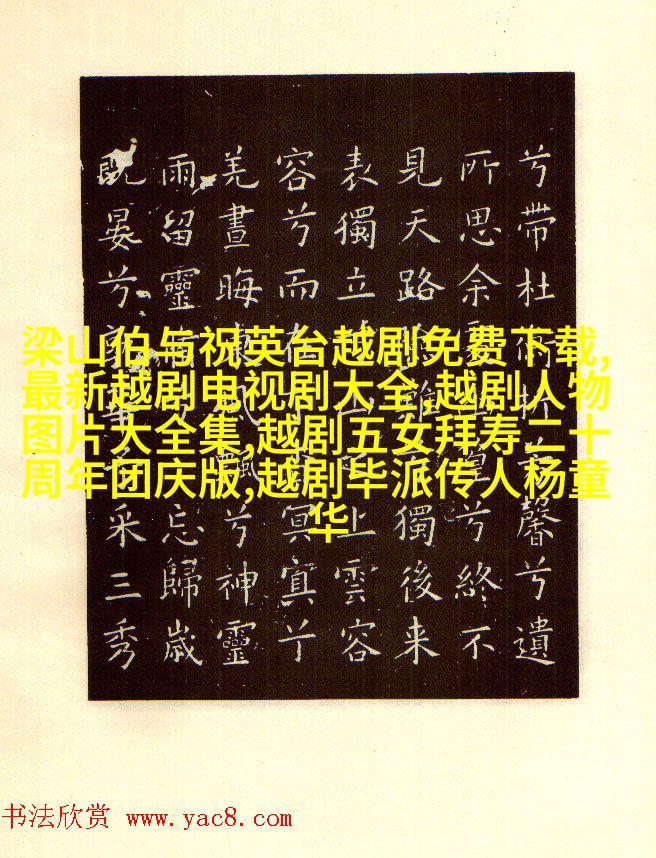 兮帶杜衡折馨兮遺
所思余處篁兮終不
見天路險難獨後来
表獨立上雲容
容兮而在冥冥兮
羌晝晦東風飄兮神靈
雨留靈忘歸歲
既晏兮采三秀
梁山伯与祝英台越剧免费下载,
最新越剧电视剧大全,越剧人物
图片大全集,越剧五女拜寿二十
周年团庆版,越剧毕派传人杨童
华
书法欣赏 www.yac8.com